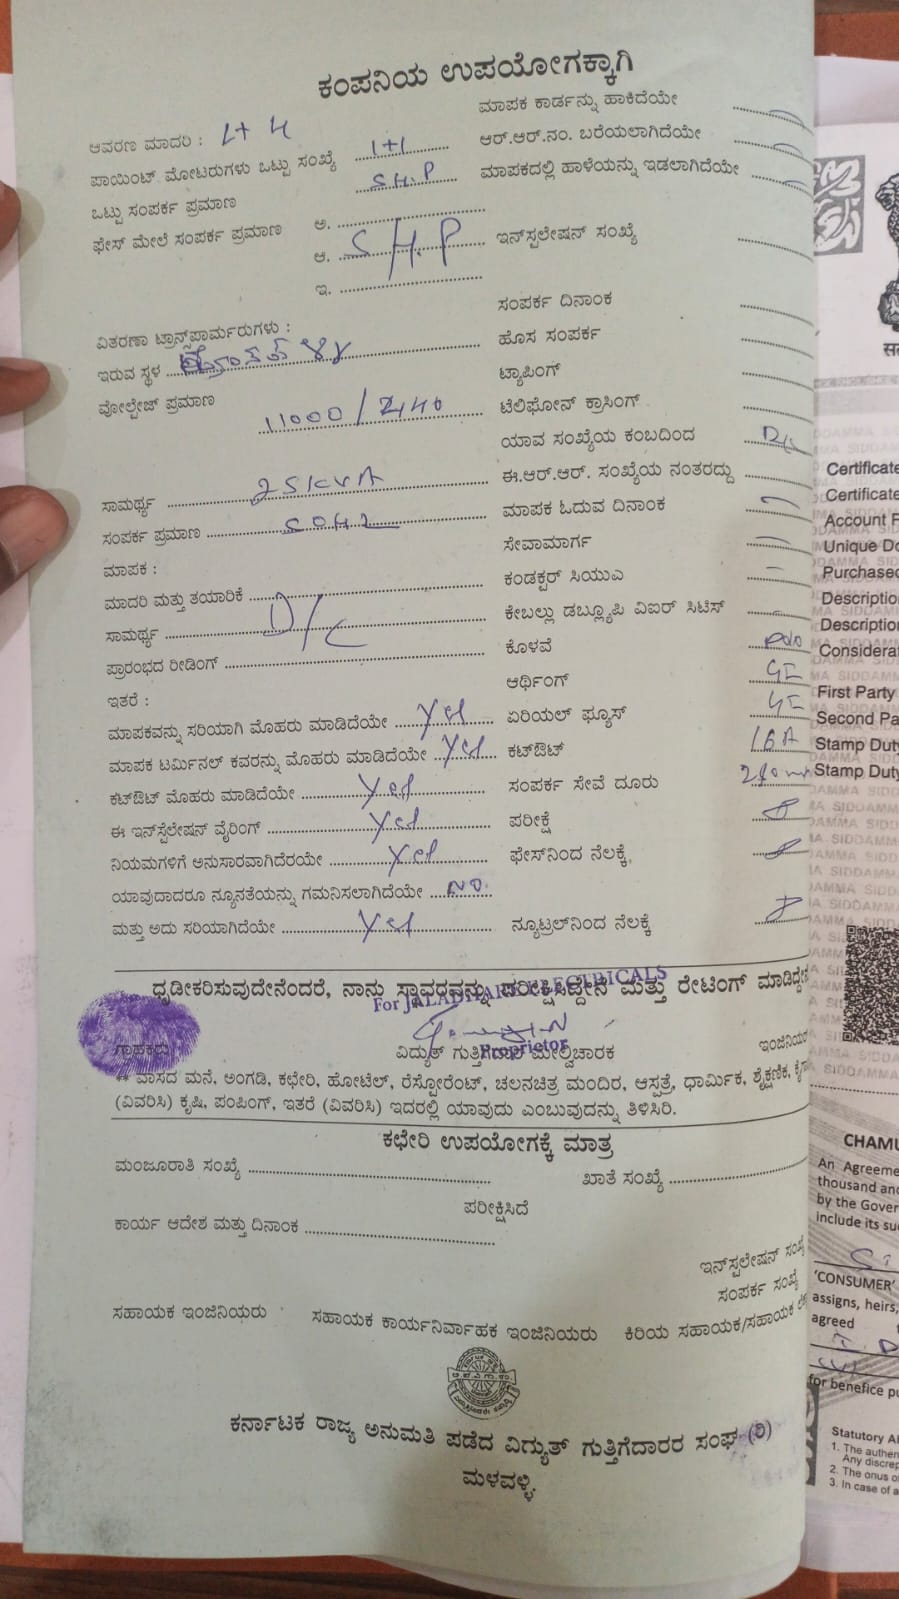 ಕಂಪನಿಯ ಉಪಯೋಗಕ್ಕಾಗಿ
ಮಾಪಕ ಕಾರ್ಡನ್ನು ಹಾಕಿದೆಯೇ
ಆವರಣ ಮಾದರಿ : L+ 4
ಆರ್.ಆರ್.ನಂ. ಬರೆಯಲಾಗಿದೆಯೇ
ಪಾಯಿಂಟ್ ಮೋಟರುಗಳು ಒಟ್ಟು ಸಂಖ್ಯೆ 1+1
ಮಾಪಕದಲ್ಲಿ ಹಾಳೆಯನ್ನು ಇಡಲಾಗಿದೆಯೇ
ಒಟ್ಟು ಸಂಪರ್ಕ ಪ್ರಮಾಣ 5H.P
ಫೇಸ್ ಮೇಲೆ ಸಂಪರ್ಕ ಪ್ರಮಾಣ ಅ.
ಆ. 5 H.P ಇನ್‌ಸ್ಟಲೇಷನ್ ಸಂಖ್ಯೆ
ಇ.
ಸಂಪರ್ಕ ದಿನಾಂಕ
ವಿತರಣಾ ಟ್ರಾನ್ಸ್‌ಫಾರ್ಮರುಗಳು :
ಹೊಸ ಸಂಪರ್ಕ
ಇರುವ ಸ್ಥಳ
ಟ್ಯಾಪಿಂಗ್
ವೋಲ್ಟೇಜ್ ಪ್ರಮಾಣ 11000/2440
ಟೆಲಿಫೋನ್ ಕ್ರಾಸಿಂಗ್
ಯಾವ ಸಂಖ್ಯೆಯ ಕಂಬದಿಂದ D/L
ಈ.ಆರ್.ಆರ್. ಸಂಖ್ಯೆಯ ನಂತರದ್ದು
ಸಾಮರ್ಥ್ಯ 25KVA
ಮಾಪಕ ಓದುವ ದಿನಾಂಕ
ಸಂಪರ್ಕ ಪ್ರಮಾಣ 50HZ
ಸೇವಾಮಾರ್ಗ
ಮಾಪಕ :
ಕಂಡಕ್ಟರ್ ಸಿಯುಎ
ಮಾದರಿ ಮತ್ತು ತಯಾರಿಕೆ
ಕೇಬಲ್ಲು ಡಬ್ಲ್ಯೂಪಿ ವಿಐರ್ ಸಿಟಿಸ್
ಸಾಮರ್ಥ್ಯ D/L
ಕೊಳವೆ
ಪ್ರಾರಂಭದ ರೀಡಿಂಗ್
ಆರ್ಥಿಂಗ್ GI
ಇತರೆ :
ಮಾಪಕವನ್ನು ಸರಿಯಾಗಿ ಮೊಹರು ಮಾಡಿದೆಯೇ Yes ಏರಿಯಲ್ ಫ್ಯೂಸ್ GI
ಮಾಪಕ ಟರ್ಮಿನಲ್ ಕವರನ್ನು ಮೊಹರು ಮಾಡಿದೆಯೇ Yes ಕಟ್‌ಔಟ್ 16A
ಕಟ್‌ಔಟ್ ಮೊಹರು ಮಾಡಿದೆಯೇ Yes ಸಂಪರ್ಕ ಸೇವೆ ದೂರು
ಈ ಇನ್‌ಸ್ಟೆಲೇಷನ್ ವೈರಿಂಗ್ Yes ಪರೀಕ್ಷೆ
ನಿಯಮಗಳಿಗೆ ಅನುಸಾರವಾಗಿದೆರಯೇ Yes ಫೇಸ್‌ನಿಂದ ನೆಲಕ್ಕೆ
ಯಾವುದಾದರೂ ನ್ಯೂನತೆಯನ್ನು ಗಮನಿಸಲಾಗಿದೆಯೇ NO
ಮತ್ತು ಅದು ಸರಿಯಾಗಿದೆಯೇ Yes ನ್ಯೂಟ್ರಲ್‌ನಿಂದ ನೆಲಕ್ಕೆ
ಧೃಡೀಕರಿಸುವುದೇನೆಂದರೆ, ನಾನು ಸ್ಥಾವರವನ್ನು ಪರೀಕ್ಷಿಸಿದ್ದೇನೆ ಮತ್ತು ರೇಟಿಂಗ್ ಮಾಡಿದ್ದೇನೆ
For JALADHARE ELECTRICALS
Proprietor
ಗ್ರಾಹಕರು ವಿದ್ಯುತ್ ಗುತ್ತಿಗೆದಾರ ಮೇಲ್ವಿಚಾರಕ ಇಂಜಿನಿಯರ
** ವಾಸದ ಮನೆ, ಅಂಗಡಿ, ಕಛೇರಿ, ಹೋಟೆಲ್, ರೆಸ್ಟೋರೆಂಟ್, ಚಲನಚಿತ್ರ ಮಂದಿರ, ಆಸ್ಪತ್ರೆ, ಧಾರ್ಮಿಕ, ಶೈಕ್ಷಣಿಕ,
(ವಿವರಿಸಿ) ಕೃಷಿ, ಪಂಪಿಂಗ್, ಇತರೆ (ವಿವರಿಸಿ) ಇದರಲ್ಲಿ ಯಾವುದು ಎಂಬುವುದನ್ನು ತಿಳಿಸಿರಿ.
ಕಛೇರಿ ಉಪಯೋಗಕ್ಕೆ ಮಾತ್ರ
ಮಂಜೂರಾತಿ ಸಂಖ್ಯೆ ಖಾತೆ ಸಂಖ್ಯೆ
ಪರೀಕ್ಷಿಸಿದೆ
ಕಾರ್ಯ ಆದೇಶ ಮತ್ತು ದಿನಾಂಕ
ಇನ್‌ಸ್ಟಲೇಷನ್ ಸಂಖ್ಯೆ
ಸಂಪರ್ಕ ಸಂಖ್ಯೆ
ಸಹಾಯಕ ಇಂಜಿನಿಯರು ಸಹಾಯಕ ಕಾರ್ಯನಿರ್ವಾಹಕ ಇಂಜಿನಿಯರು ಕಿರಿಯ ಸಹಾಯಕ/ಸಹಾಯಕ
ಕರ್ನಾಟಕ ರಾಜ್ಯ ಅನುಮತಿ ಪಡೆದ ವಿದ್ಯುತ್ ಗುತ್ತಿಗೆದಾರರ ಸಂಘ (ರಿ)
ಮಳವಳ್ಳಿ.
Certificate
Certificate
Account
Unique
Purchased
Description
Description
First Party
Second
Stamp Duty
Stamp Duty
An
thousand and
by the
include its
'CONSUMER'
assigns, heirs,
agreed
for benefice
Statutory
1. The
Any
2. The onus
3. In case of